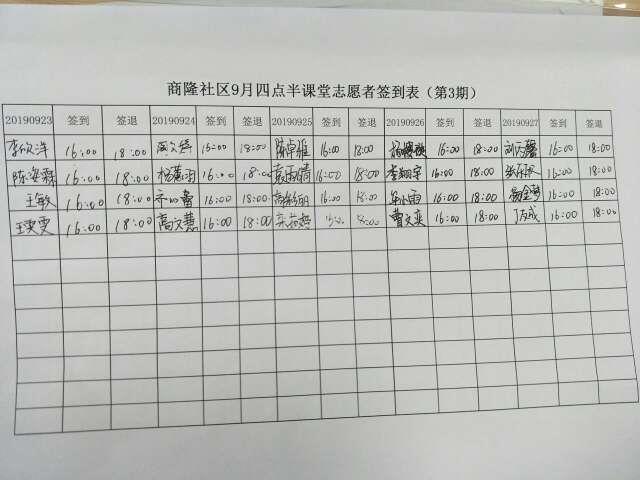 商隆社区9月四点半课堂志愿者签到表（第3期）
20190923 签到 签退 20190924 签到 签退 20190925 签到 签退 20190926 签到 签退 20190927 签到 签退
李欣洋 16:00 18:00 16:00 18:00 陈卓雅 16:00 18:00 16:00 18:00 16:00 18:00
16:00 18:00 16:00 18:00 16:00 18:00 16:00 18:00 16:00 18:00
王敏 16:00 18:00 16:00 18:00 16:00 18:00 16:00 18:00 16:00 18:00
王雯雯 16:00 18:00 高文慧 16:00 18:00 16:00 18:00 曹文奕 16:00 18:00 丁万成 16:00 18:00